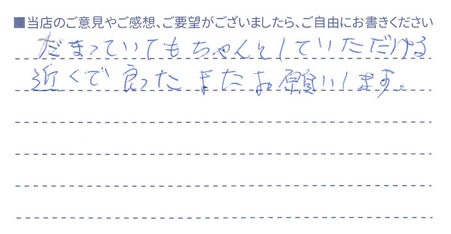 ■当店のご意見やご感想、ご要望がございましたら、ご自由にお書きください
だまっていてもちゃんとしていただける
近くで良ったまたお願いします。